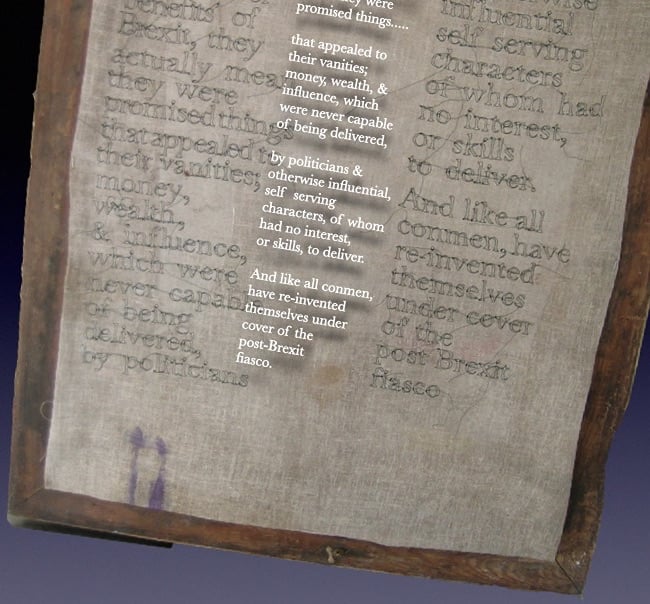 benefits of
Brexit, they
actually
they were
promised things
that appealed to
their vanities;
money,
wealth,
& influence,
which were
never capable
of being
delivered,
by politicians
they were
promised things.....
that appealed to
their vanities;
money, wealth, &
influence, which
were never capable
of being delivered,
by politicians &
otherwise influential,
self serving
characters, of whom
had no interest,
or skills, to deliver.
And like all conmen,
have re-invented
themselves under
cover of the
post-Brexit
fiasco.
influential
self serving
characters
of whom had
no interest,
or skills
to deliver.
And like all
conmen, have
re-invented
themselves
under cover
of the
post Brexit
fiasco